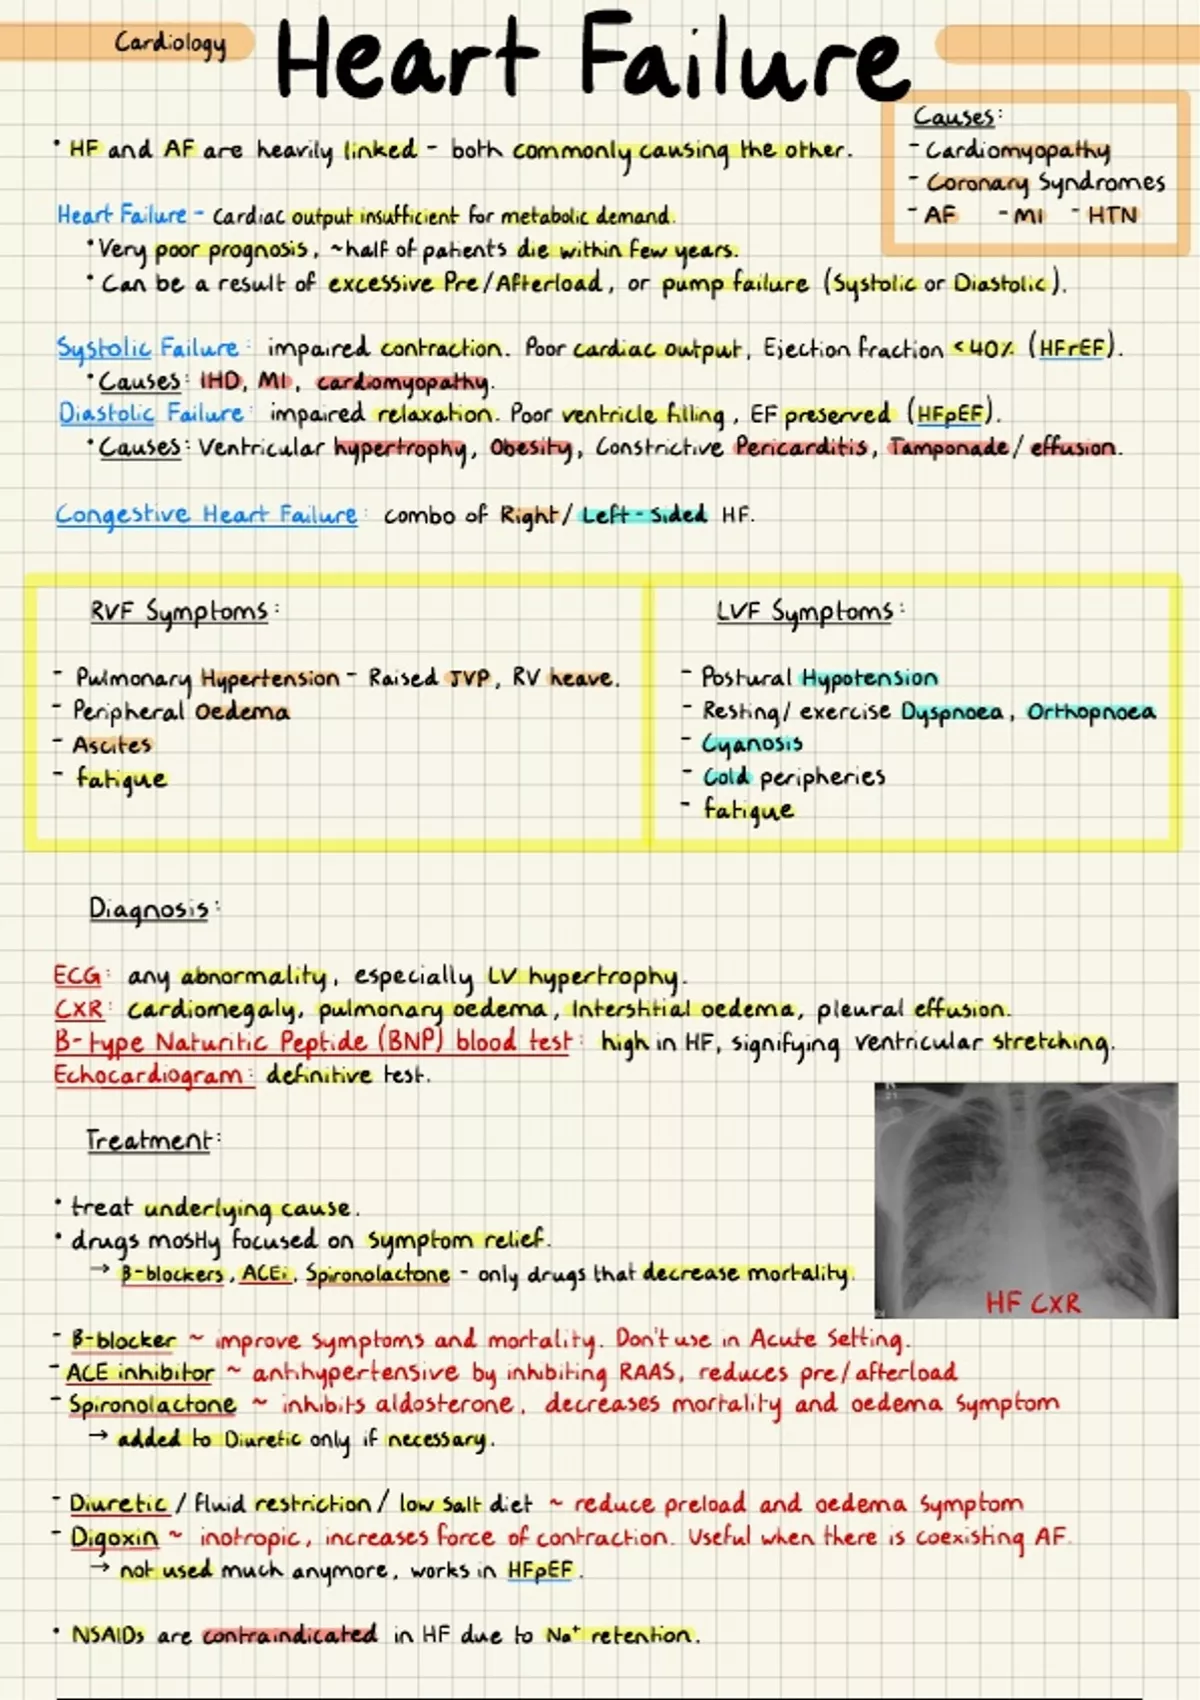 Cardiology
Heart Failure
Causes:
- Cardiomyopathy
- Coronary Syndromes
- AF - MI - HTN
• HF and AF are heavily linked - both commonly causing the other.
Heart Failure - Cardiac output insufficient for metabolic demand.
• Very poor prognosis, ~half of patients die within few years.
• Can be a result of excessive Pre/Afterload, or pump failure (Systolic or Diastolic).
Systolic Failure: impaired contraction. Poor cardiac output, Ejection fraction <40% (HFrEF).
• Causes: IHD, MI, cardiomyopathy.
Diastolic Failure: impaired relaxation. Poor ventricle filling, EF preserved (HFpEF).
• Causes: Ventricular hypertrophy, Obesity, Constrictive Pericarditis, Tamponade/effusion.
Congestive Heart Failure: combo of Right/Left-Sided HF.
RVF Symptoms:
- Pulmonary Hypertension - Raised JVP, RV heave.
- Peripheral Oedema
- Ascites
- fatigue
LVF Symptoms:
- Postural Hypotension
- Resting/exercise Dyspnoea, Orthopnoea
- Cyanosis
- Cold peripheries
- fatigue
Diagnosis:
ECG: any abnormality, especially LV hypertrophy.
CXR: cardiomegaly, pulmonary oedema, Interstitial oedema, pleural effusion.
B-type Naturitic Peptide (BNP) blood test: high in HF, signifying ventricular stretching.
Echocardiogram: definitive test.
Treatment:
• treat underlying cause.
• drugs mostly focused on symptom relief.
→ β-blockers, ACEi, Spironolactone - only drugs that decrease mortality.
HF CXR
- β-blocker ~ improve symptoms and mortality. Don't use in Acute Setting.
- ACE inhibitor ~ antihypertensive by inhibiting RAAS, reduces pre/afterload
- Spironolactone ~ inhibits aldosterone, decreases mortality and oedema symptom
→ added to Diuretic only if necessary.
- Diuretic / fluid restriction / low salt diet ~ reduce preload and oedema symptom
- Digoxin ~ inotropic, increases force of contraction. Useful when there is coexisting AF.
→ not used much anymore, works in HFpEF.
• NSAIDs are contraindicated in HF due to Na⁺ retention.